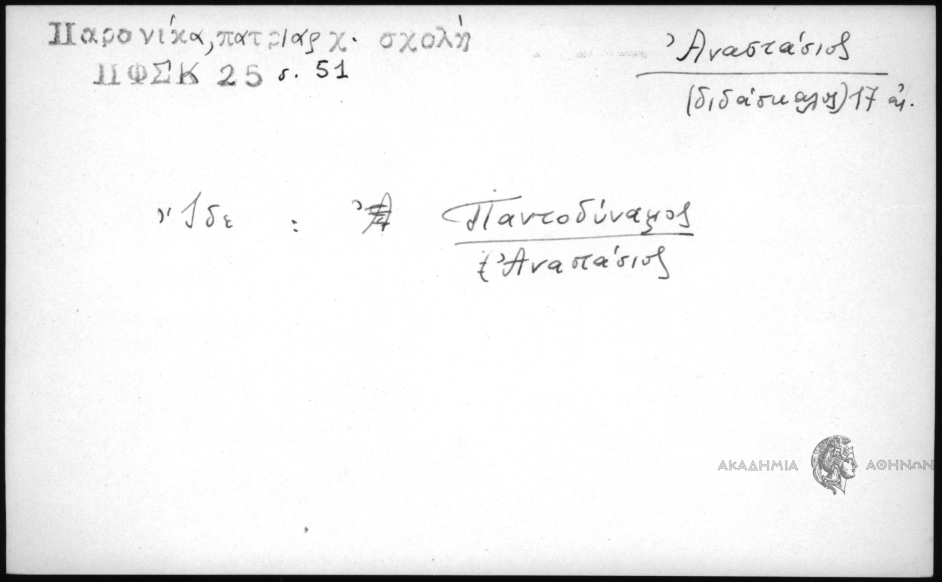 Παρονίκα, πατριαρχ. σχολή
ΠΦΣΚ 25 σ. 51
Ἀναστάσιος
(διδάσκαλος) 17 αἰ.
Ἴδε : Παντοδύναμος
Ἀναστάσιος
ΑΚΑΔΗΜΙΑ ΑΘΗΝΩΝ